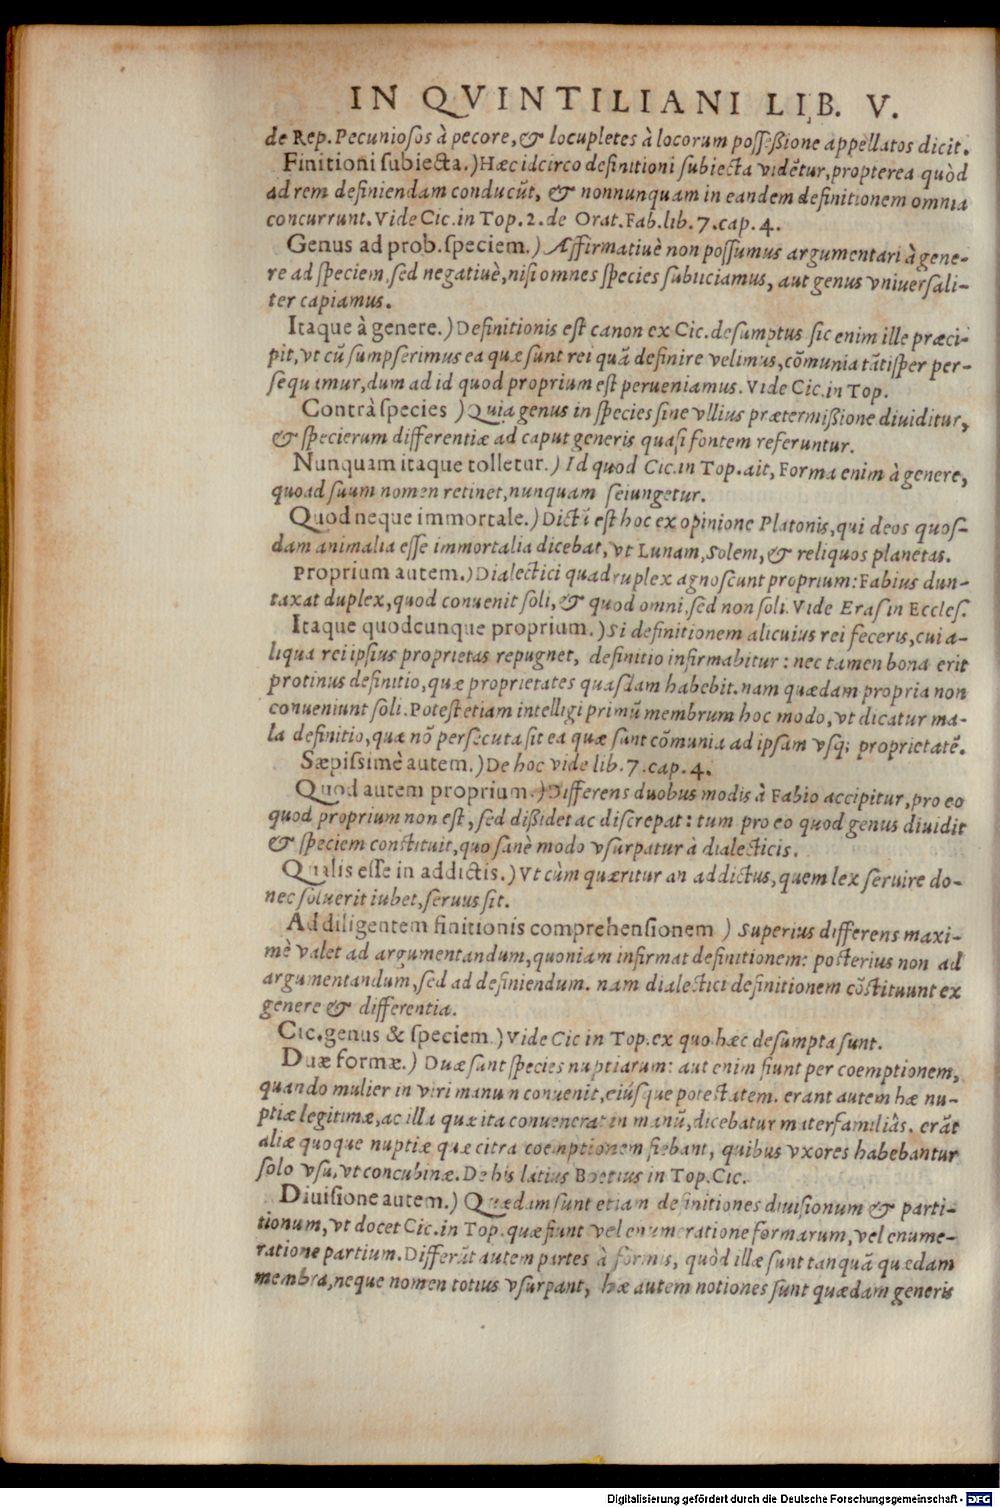 IN QVINTILIANI LIB. V.
de Rep. Pecuniosos à pecore, & locupletes à locorum possessione appellatos dicit.
Finitioni subiecta.) Hæc idcirco definitioni subiecta vidẽtur, propterea quòd
ad rem definiendam conducũt, & nonnunquam in eandem definitionem omnia
concurrunt. Vide Cic. in Top. 2. de Orat. Fab. lib. 7. cap. 4.
Genus ad prob. speciem.) Affirmatiuè non possumus argumentari à gene-
re ad speciem, sed negatiuè, nisi omnes species subiiciamus, aut genus vniuersali-
ter capiamus.
Itaque à genere.) Definitionis est canon ex Cic. desumptus sic enim ille præci-
pit, vt cũ sumpserimus ea quæ sunt rei quã definire velimus, cõmunia tãtisper per-
sequimur, dum ad id quod proprium est perueniamus. Vide Cic. in Top.
Contrà species ) Quia genus in species sine vllius prætermissione diuiditur,
& specierum differentiæ ad caput generis quasi fontem referuntur.
Nunquam itaque tolletur.) Id quod Cic. in Top. ait, Forma enim à genere,
quoad suum nomen retinet, nunquam seiungetur.
Quod neque immortale.) Dictũ est hoc ex opinione Platonis, qui deos quos-
dam animalia esse immortalia dicebat, vt Lunam, Solem, & reliquos planetas.
Proprium autem.) Dialectici quadruplex agnoscunt proprium: Fabius dun-
taxat duplex, quod conuenit soli, & quod omni, sed non soli. Vide Eras in Eccles.
Itaque quodcunque proprium.) Si definitionem alicuius rei feceris, cui a-
liqua rei ipsius proprietas repugnet, definitio infirmabitur: nec tamen bona erit
protinus definitio, quæ proprietates quasdam habebit. nam quædam propria non
conueniunt soli. Potest etiam intelligi primũ membrum hoc modo, vt dicatur ma-
la definitio, quæ nõ persecuta sit ea quæ sunt cõmunia ad ipsam vsq; proprietatẽ.
Sæpissimè autem.) De hoc vide lib. 7. cap. 4.
Quod autem proprium.) Differens duobus modis à Fabio accipitur, pro eo
quod proprium non est, sed dissidet ac discrepat: tum pro eo quod genus diuidit
& speciem constituit, quo sanè modo vsurpatur à dialecticis.
Qualis esse in addictis.) Vt cùm quæritur an addictus, quem lex seruire do-
nec soluerit iubet, seruus sit.
Ad diligentem finitionis comprehensionem ) Superius differens maxi-
mè valet ad argumentandum, quoniam infirmat definitionem: posterius non ad
argumentandum, sed ad definiendum. nam dialectici definitionem cõstituunt ex
genere & differentia.
Cic. genus & speciem.) Vide Cic in Top. ex quo hæc desumpta sunt.
Duæ formæ.) Duæ sunt species nuptiarum: aut enim fiunt per coemptionem,
quando mulier in viri manum conuenit, eiúsque potestatem. erant autem hæ nu-
ptiæ legitimæ, ac illa quæ ita conuenerat in manũ, dicebatur materfamiliâs. erãt
aliæ quoque nuptiæ quæ citra coemptionem fiebant, quibus vxores habebantur
solo vsu, vt concubinæ. De his latius Boetius in Top. Cic.
Diuisione autem.) Quædam sunt etiam definitiones diuisionum & parti-
tionum, vt docet Cic. in Top. quæ fiunt vel enumeratione formarum, vel enume-
ratione partium. Differũt autem partes à formis, quòd illæ sunt tanquã quædam
membra, neque nomen totius vsurpant, hæ autem notiones sunt quædam generis
Digitalisierung gefördert durch die Deutsche Forschungsgemeinschaft - DFG